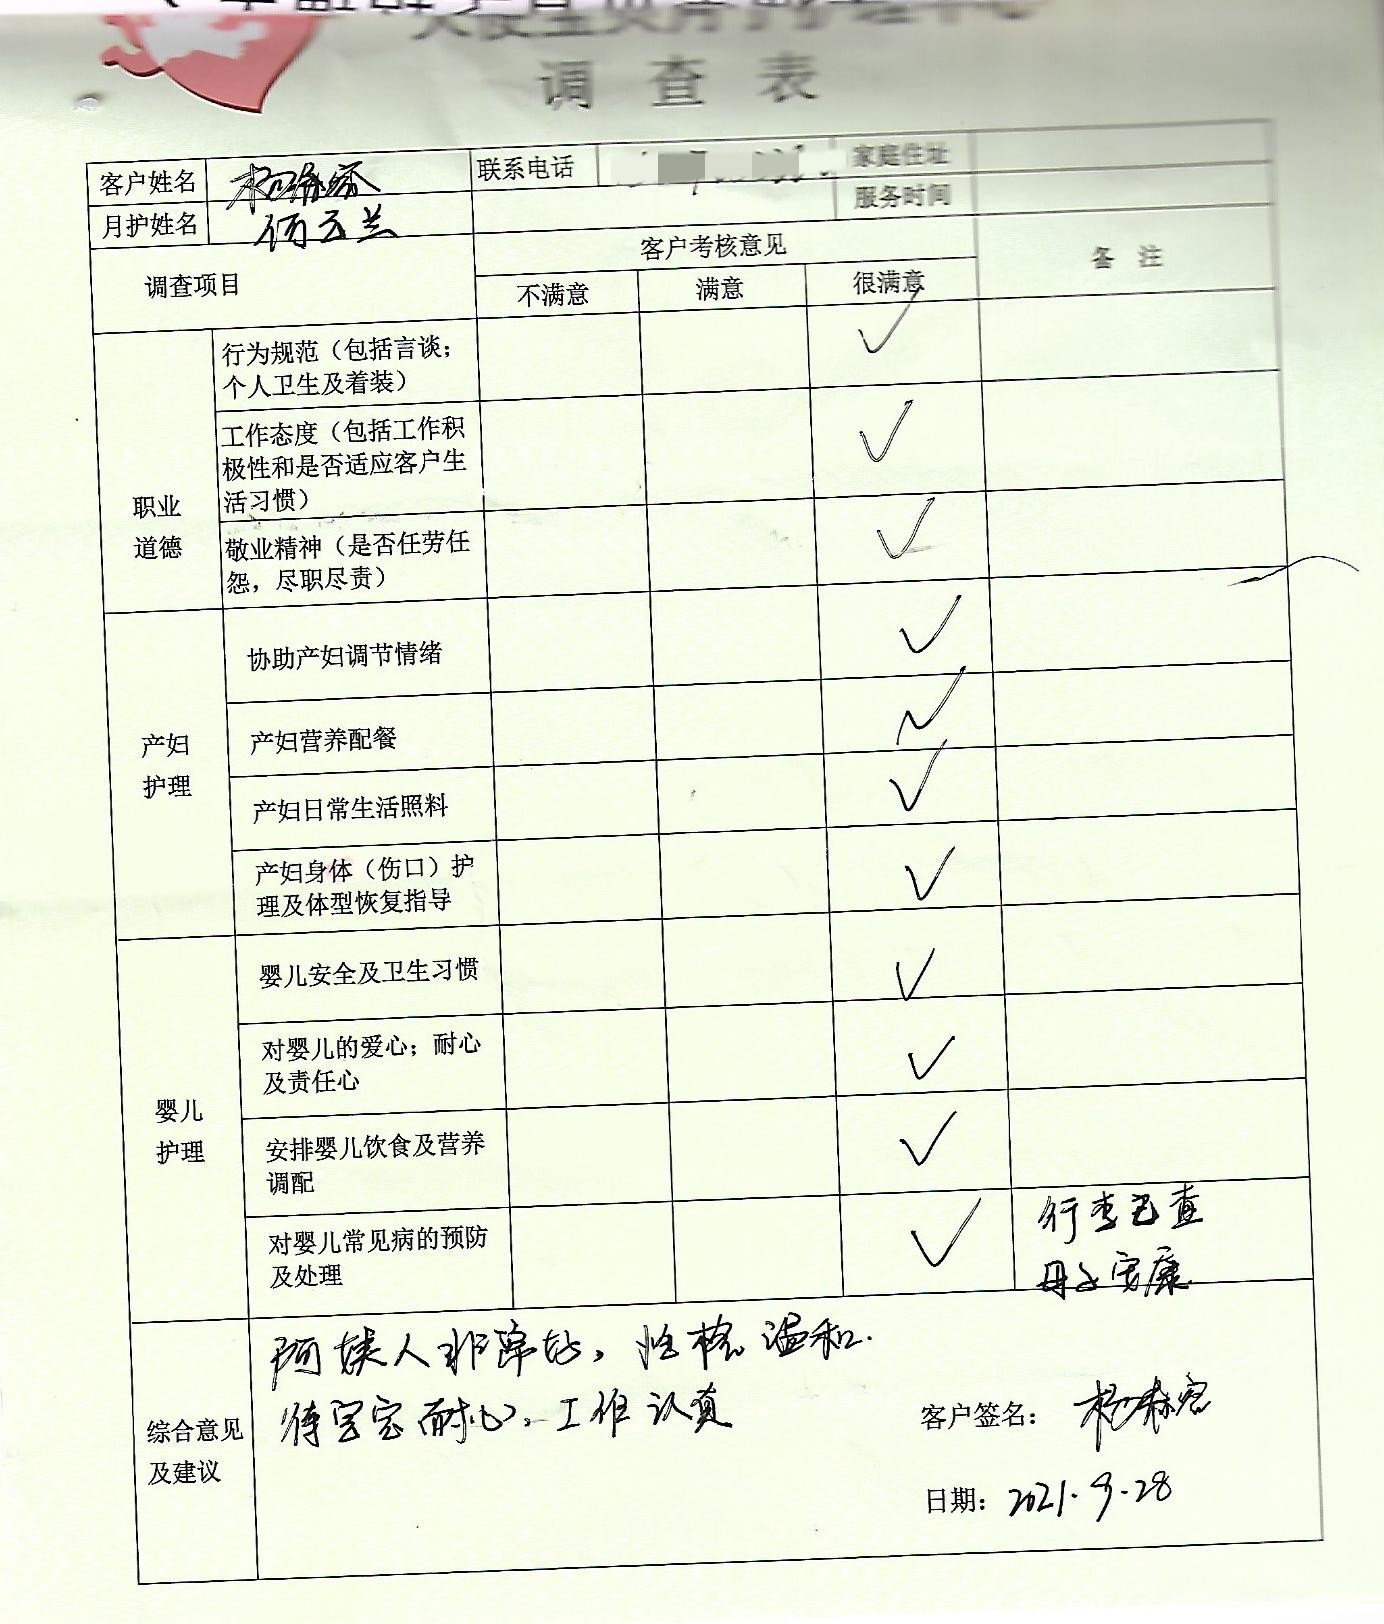 调查表
客户姓名
联系电话
家庭住址
月护姓名 何玉兰
服务时间
调查项目
客户考核意见
备 注
不满意 满意 很满意
职业
道德
行为规范（包括言谈；
个人卫生及着装）
工作态度（包括工作积
极性和是否适应客户生
活习惯）
敬业精神（是否任劳任
怨，尽职尽责）
产妇
护理
协助产妇调节情绪
产妇营养配餐
产妇日常生活照料
产妇身体（伤口）护
理及体型恢复指导
婴儿
护理
婴儿安全及卫生习惯
对婴儿的爱心；耐心
及责任心
安排婴儿饮食及营养
调配
对婴儿常见病的预防
及处理
行李已查
母子安康
综合意见
及建议
阿姨人非常好，性格温和.
待宝宝耐心，工作认真
客户签名：
日期：2021.9.28